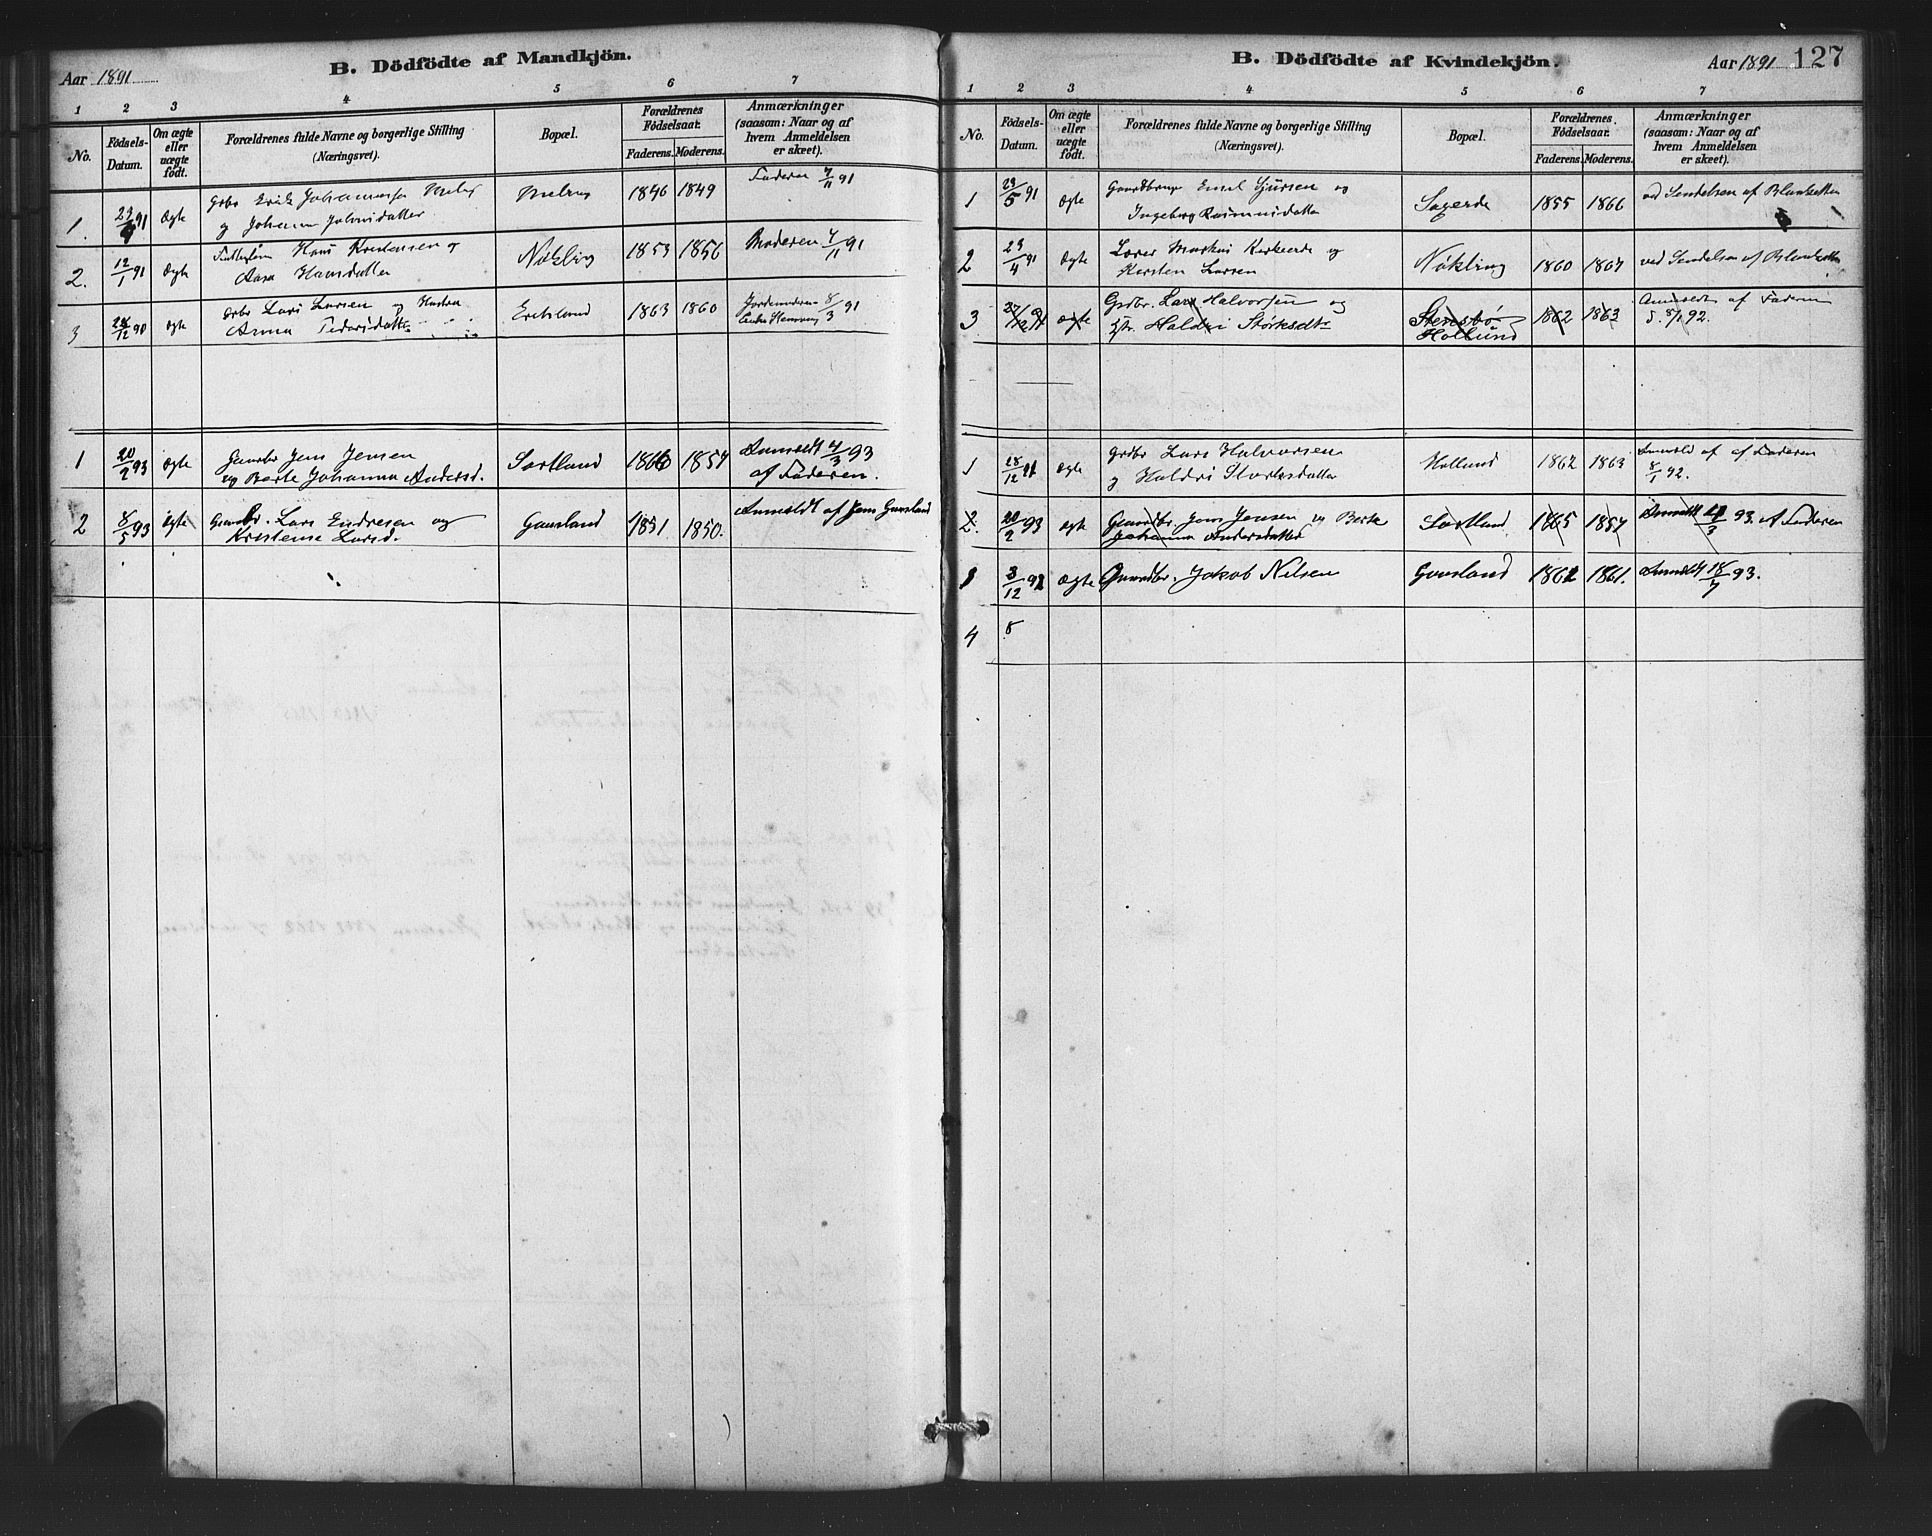 Aar 1891
B. Dödfödte af Mandkjön.
1 2 3 4 5 6 7
No.
Fødsels-Datum.
Om ægte eller uægte født.
Forældrenes fulde Navne og borgerlige Stilling
(Næringsvei).
Bopæl.
Forældrenes Fødselsaar.
Faderens. Moderens.
Anmærkninger
(saasom: Naar og af
hvem Anmeldelsen
er skeet).
1. 91 Ægte Erik 1846 1849 Faderen 7/11 91
og Johanna
2. 12/1 91 Ægte Hans Kristensen og Nøkling 1853 1856 Moderen 7/11 91
Hansdatter
3 12 90 ægte Lars Larsen og Hustru 1863 1860 8/3 91
Anna
1 20/2 93 ægte Gaardbr Jens Jensen Sortland 1866 1857 Anmeldt 4/3 93
og Berte Johanna Andersd. af Faderen.
2 8/5 93 ægte Gaardbr. Lars Endresen og Gaasland 1851 1850. Anmeldt af Jens Gaasland
Kristense Larsd.
B. Dödfödte af Kvindekjön.
Aar 1891 127
1 2 3 4 5 6 7
No.
Fødsels-Datum.
Om ægte eller uægte født.
Forældrenes fulde Navne og borgerlige Stilling
(Næringsvei).
Bopæl.
Forældrenes Fødselsaar.
Faderens. Moderens.
Anmærkninger
(saasom: Naar og af
hvem Anmeldelsen
er skeet).
1 5 91 Ægte Emil Sjursen og 1855 1866 ved Sendelsen af Blanketten
Ingeborg Rasmusdatter
2 23/4 91 Ægte Lærer Markus og Nøkling 1860 1867 ved Sendelsen af Blanketten
Kirsten Larsen
3 27/12 91 ægte Grdbr. Lars Halvorsen og Stensbø 1862 1863 af Faderen
Haldri Størksdtr Hollund d. 8/1 92.
1 28/12 91 ægte Grdbr Lars Halvorsen Hollund 1862 1863 Anmeld af af Faderen
og Haldri Størksdatter 8/1 92.
2. 20/2 93 ægte Gaardbr. Jens Jensen og Berte Sortland 1865 1857 Anmeldt 4/3 93. af Faderen
Johanna Andersdatter
3 3/12 92 ægte Gaardbr. Jakob Nilsen Gaasland 1862 1861. Anmeldt 18/7 93.
4 8